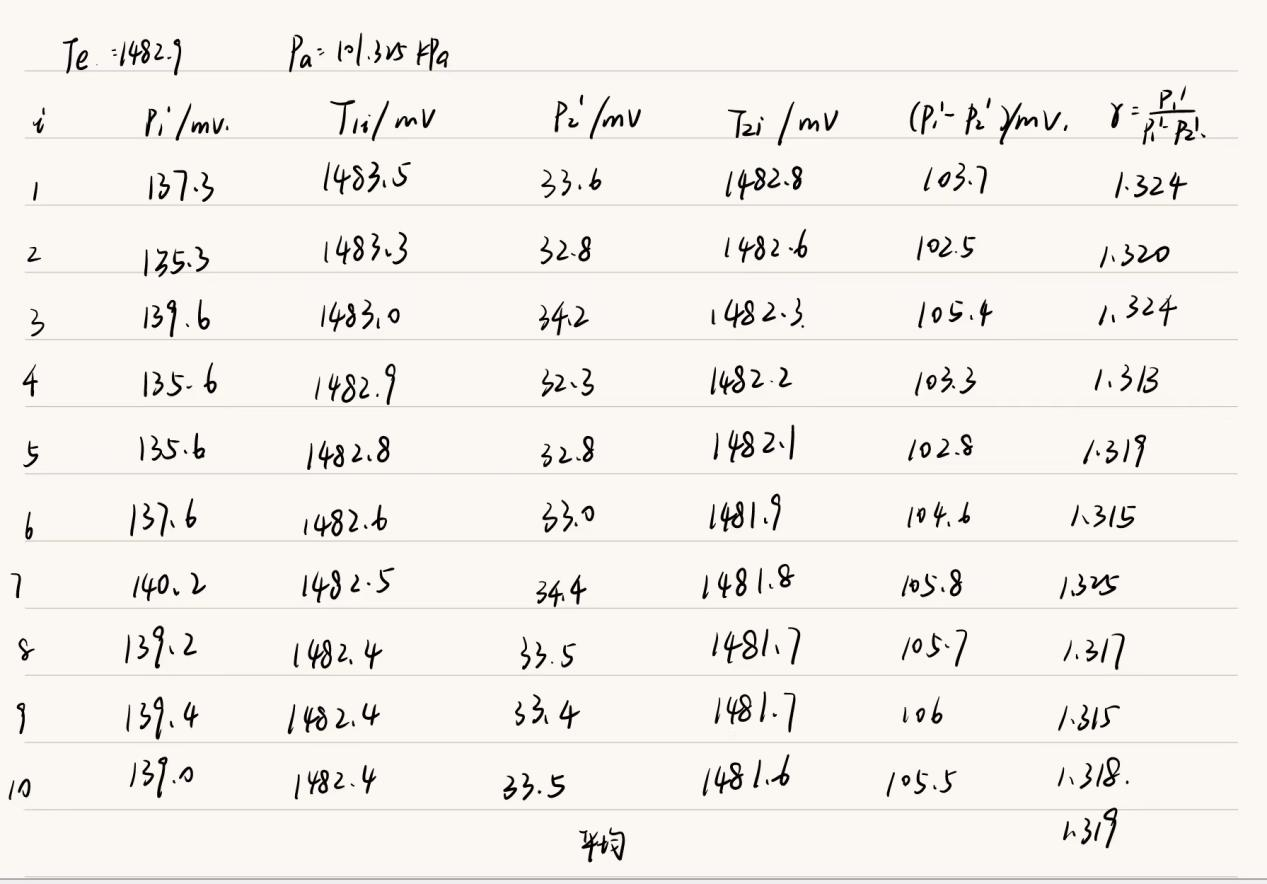 Te = 1482.9 Pa = 101.325 kPa
i P₁'/mv. T₁ᵢ/mV P₂'/mV T₂ᵢ/mV (P₁'-P₂')/mV. γ = P₁'/P₁'-P₂'.
1 137.3 1483.5 33.6 1482.8 103.7 1.324
2 135.3 1483.3 32.8 1482.6 102.5 1.320
3 139.6 1483.0 34.2 1482.3 105.4 1.324
4 135.6 1482.9 32.3 1482.2 103.3 1.313
5 135.6 1482.8 32.8 1482.1 102.8 1.319
6 137.6 1482.6 33.0 1481.9 104.6 1.315
7 140.2 1482.5 34.4 1481.8 105.8 1.325
8 139.2 1482.4 33.5 1481.7 105.7 1.317
9 139.4 1482.4 33.4 1481.7 106 1.315
10 139.0 1482.4 33.5 1481.6 105.5 1.318.
平均 1.319